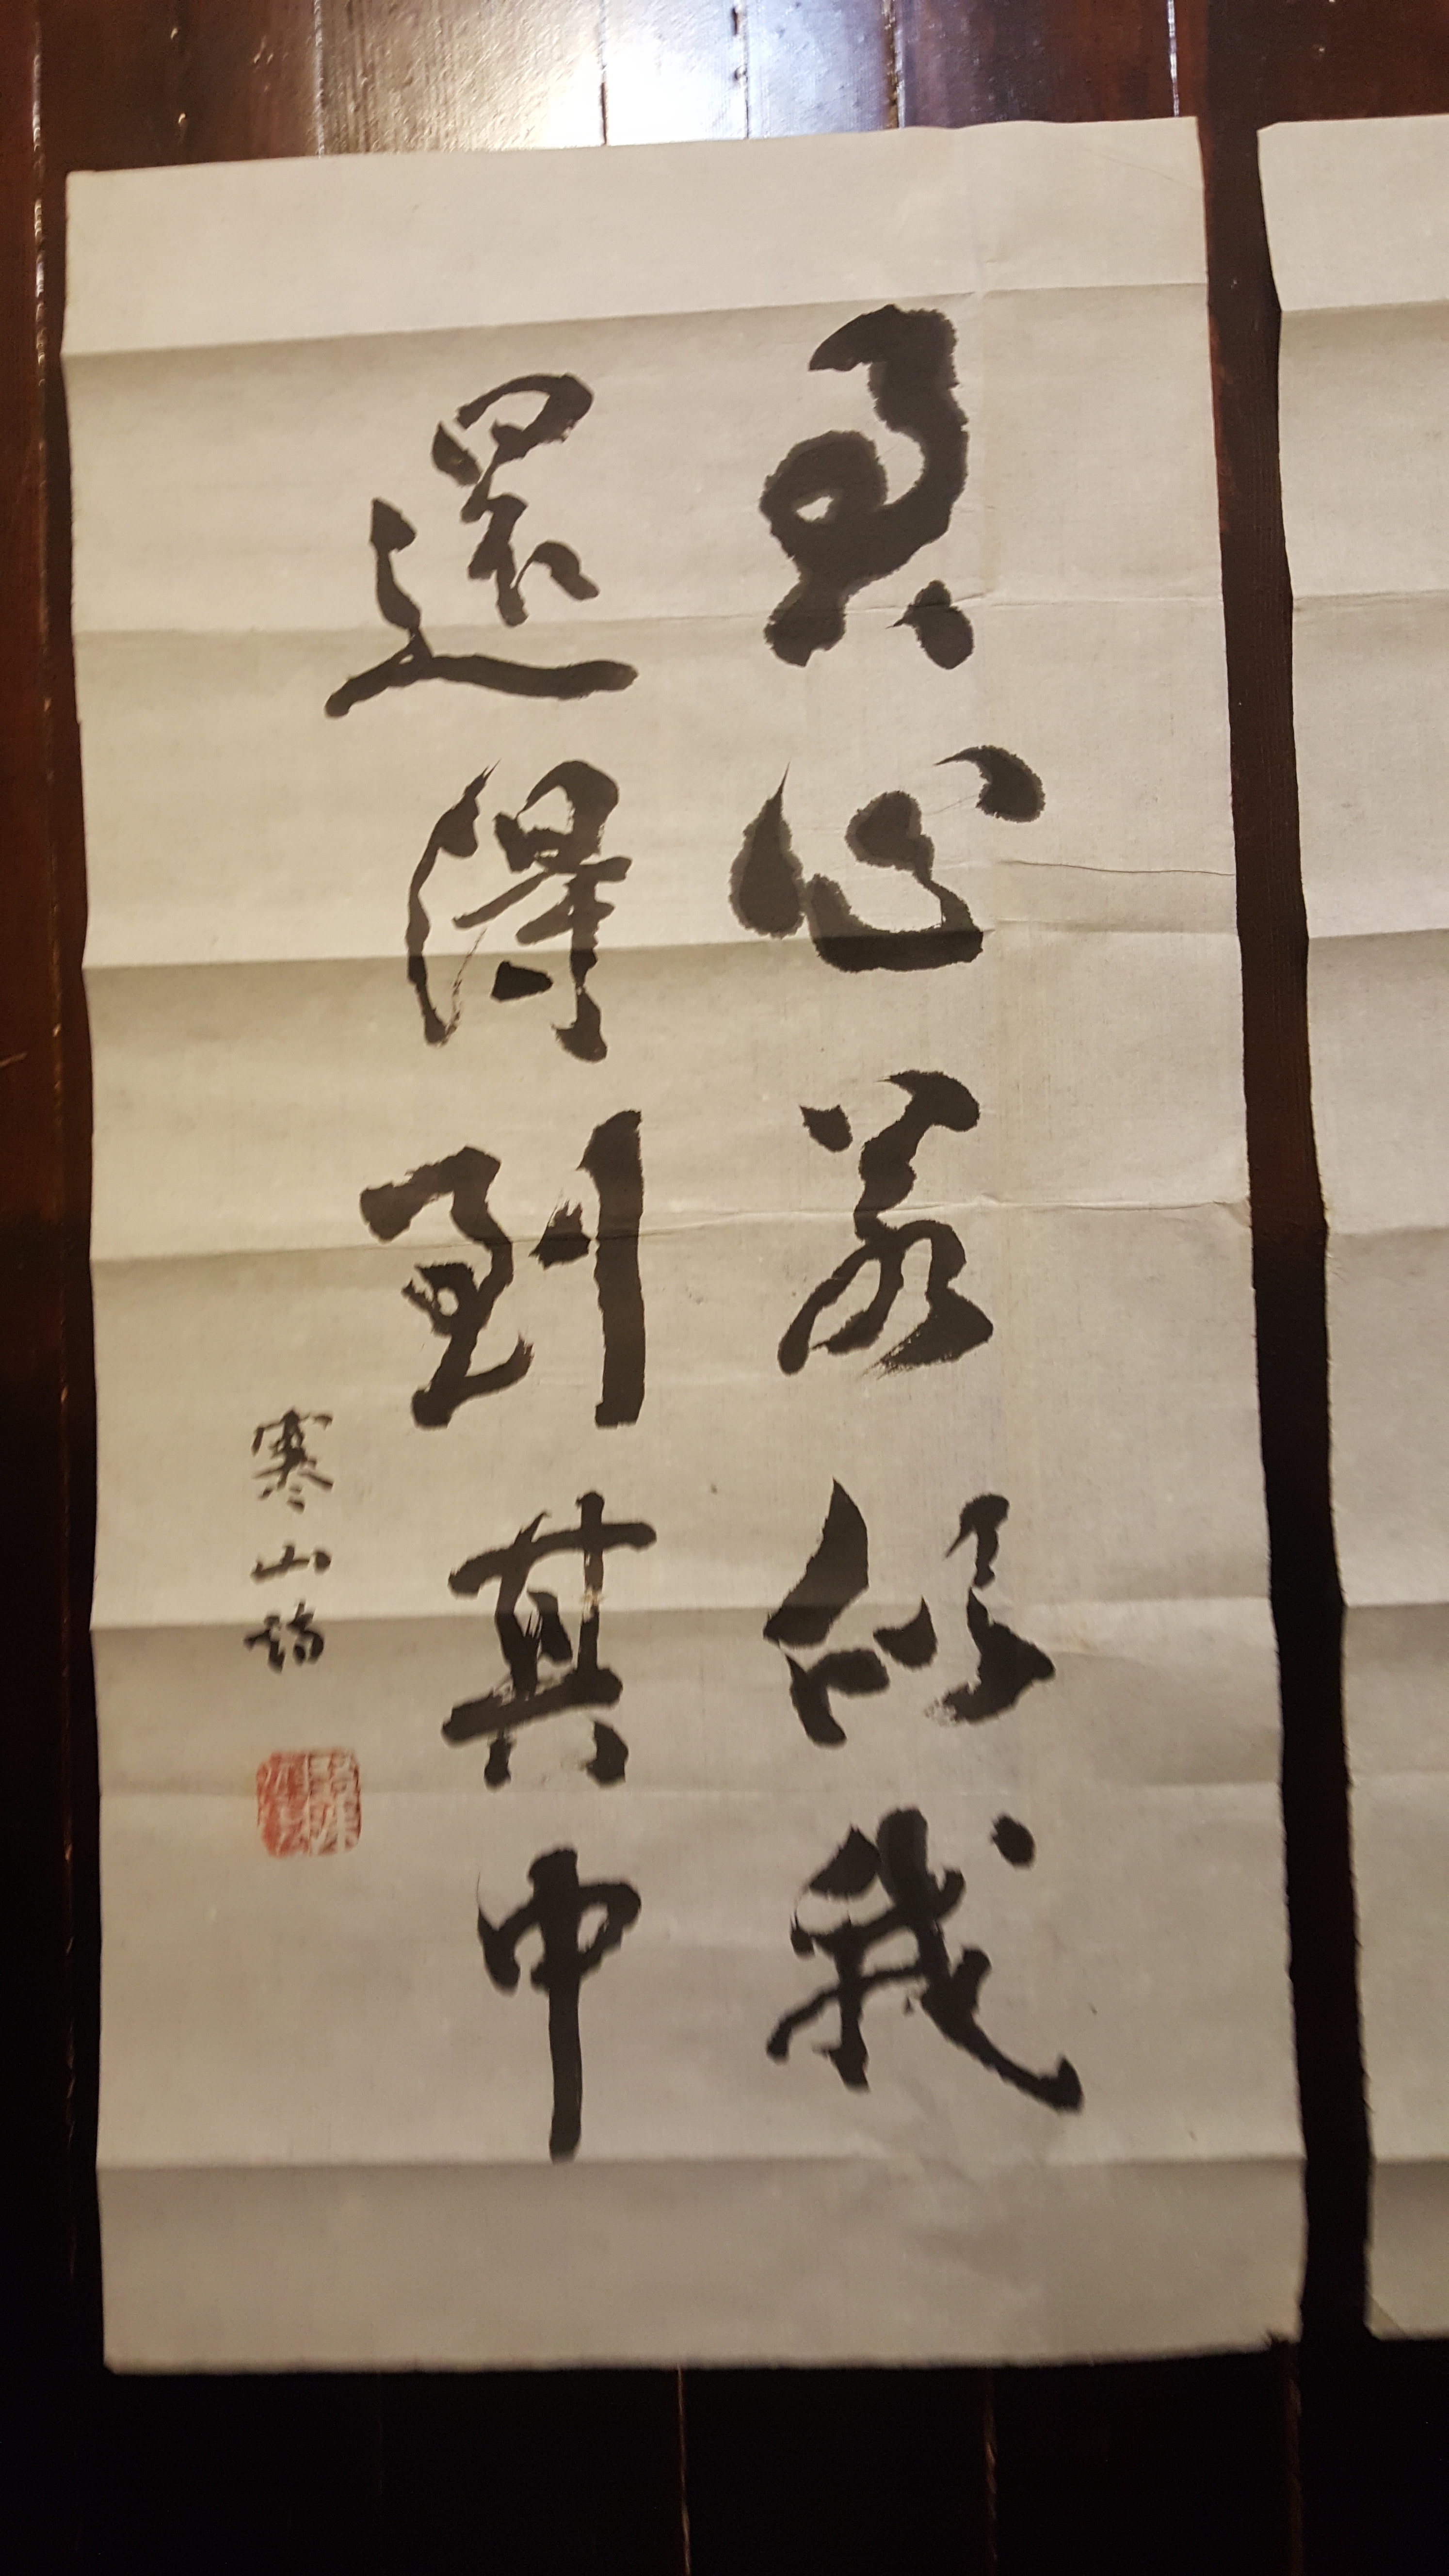 君心若似我
還得到其中
寒山詩